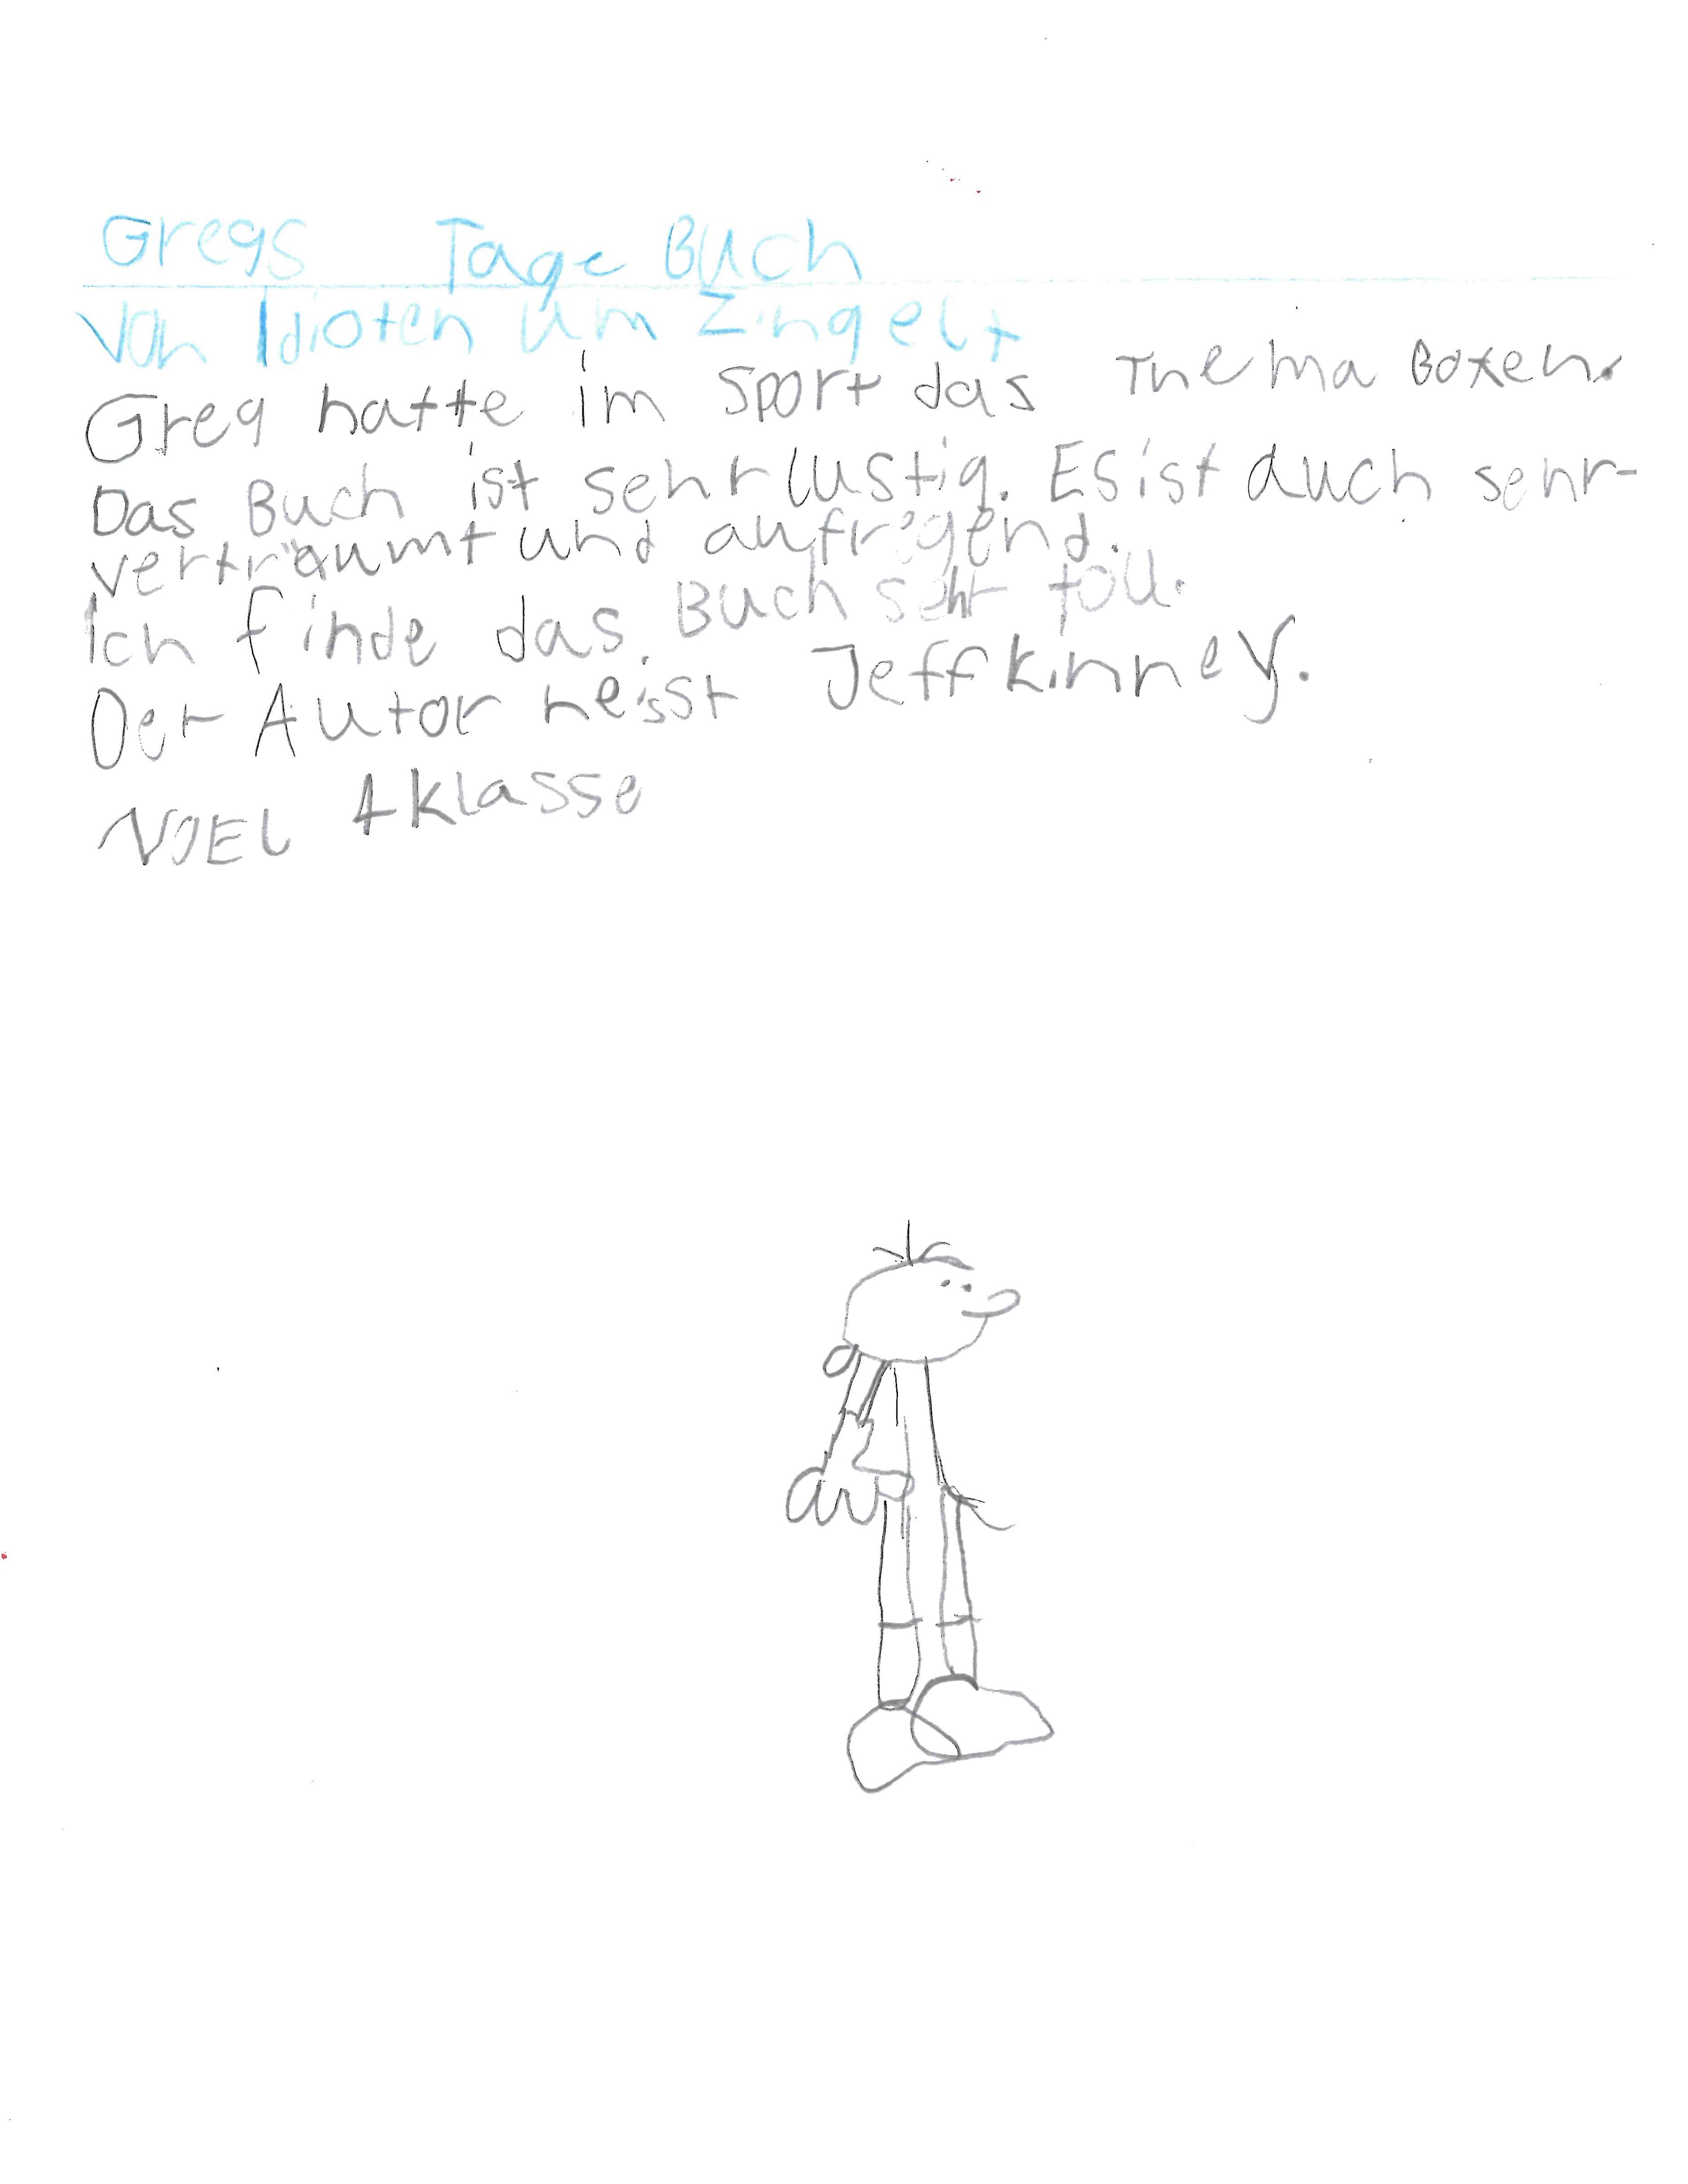 Gregs Tage Buch
Von Idioten um Zingelt
Greg hatte im Sport das Thema Boxen.
Das Buch ist sehr lustig. Es ist auch sehr-
verträumt und aufregend.
Ich finde das Buch sehr toll.
Der Autor heisst Jeff Kinney.
NOEL 4 Klasse